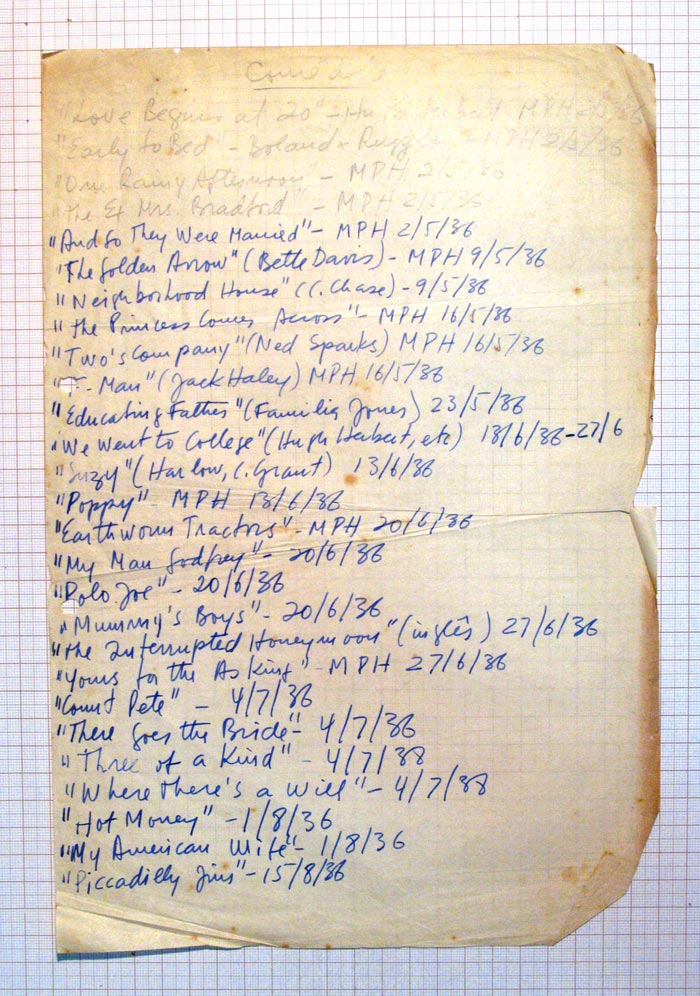 "Love Begins at 20" - MPH 2/5/36
"Early to Bed" - Boland & Ruggles - MPH 2/5/36
"One Rainy Afternoon" - MPH 2/5/36
"The Ex Mrs. Bradford" - MPH 2/5/36
"And So They Were Married" - MPH 2/5/36
"The Golden Arrow" (Bette Davis) - MPH 9/5/36
"Neighborhood House" (C. Chase) - 9/5/36
"The Princess Comes Across" - MPH 16/5/36
"Two's Company" (Ned Sparks) MPH 16/5/36
- Man" (Jack Haley) MPH 16/5/36
"Educating Father" (Familia Jones) 23/5/36
"We Went to College" (Hugh Herbert, etc) 13/6/36-27/6
"Suzy" (Harlow, C. Grant) 13/6/36
"Poppy" - MPH 13/6/36
"Earthworm Tractors" - MPH 20/6/36
"My Man Godfrey" - 20/6/36
"Polo Joe" - 20/6/36
"Mummy's Boys" - 20/6/36
"The Interrupted Honeymoon" (inglês) 27/6/36
"Yours for the Asking" - MPH 27/6/36
"Count Pete" - 4/7/36
"There Goes the Bride" - 4/7/36
"Three of a Kind" - 4/7/38
"Where there's a Will" - 4/7/38
"Hot Money" - 1/8/36
"My American Wife" - 1/8/36
"Piccadilly Jim" - 15/8/36